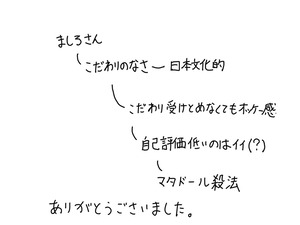 ましろさん
こだわりのなさ ー 日本文化的
こだわり受けとめなくてもオッケー感
自己評価低いのはイイ(?)
マタドール殺法
ありがとうございました。